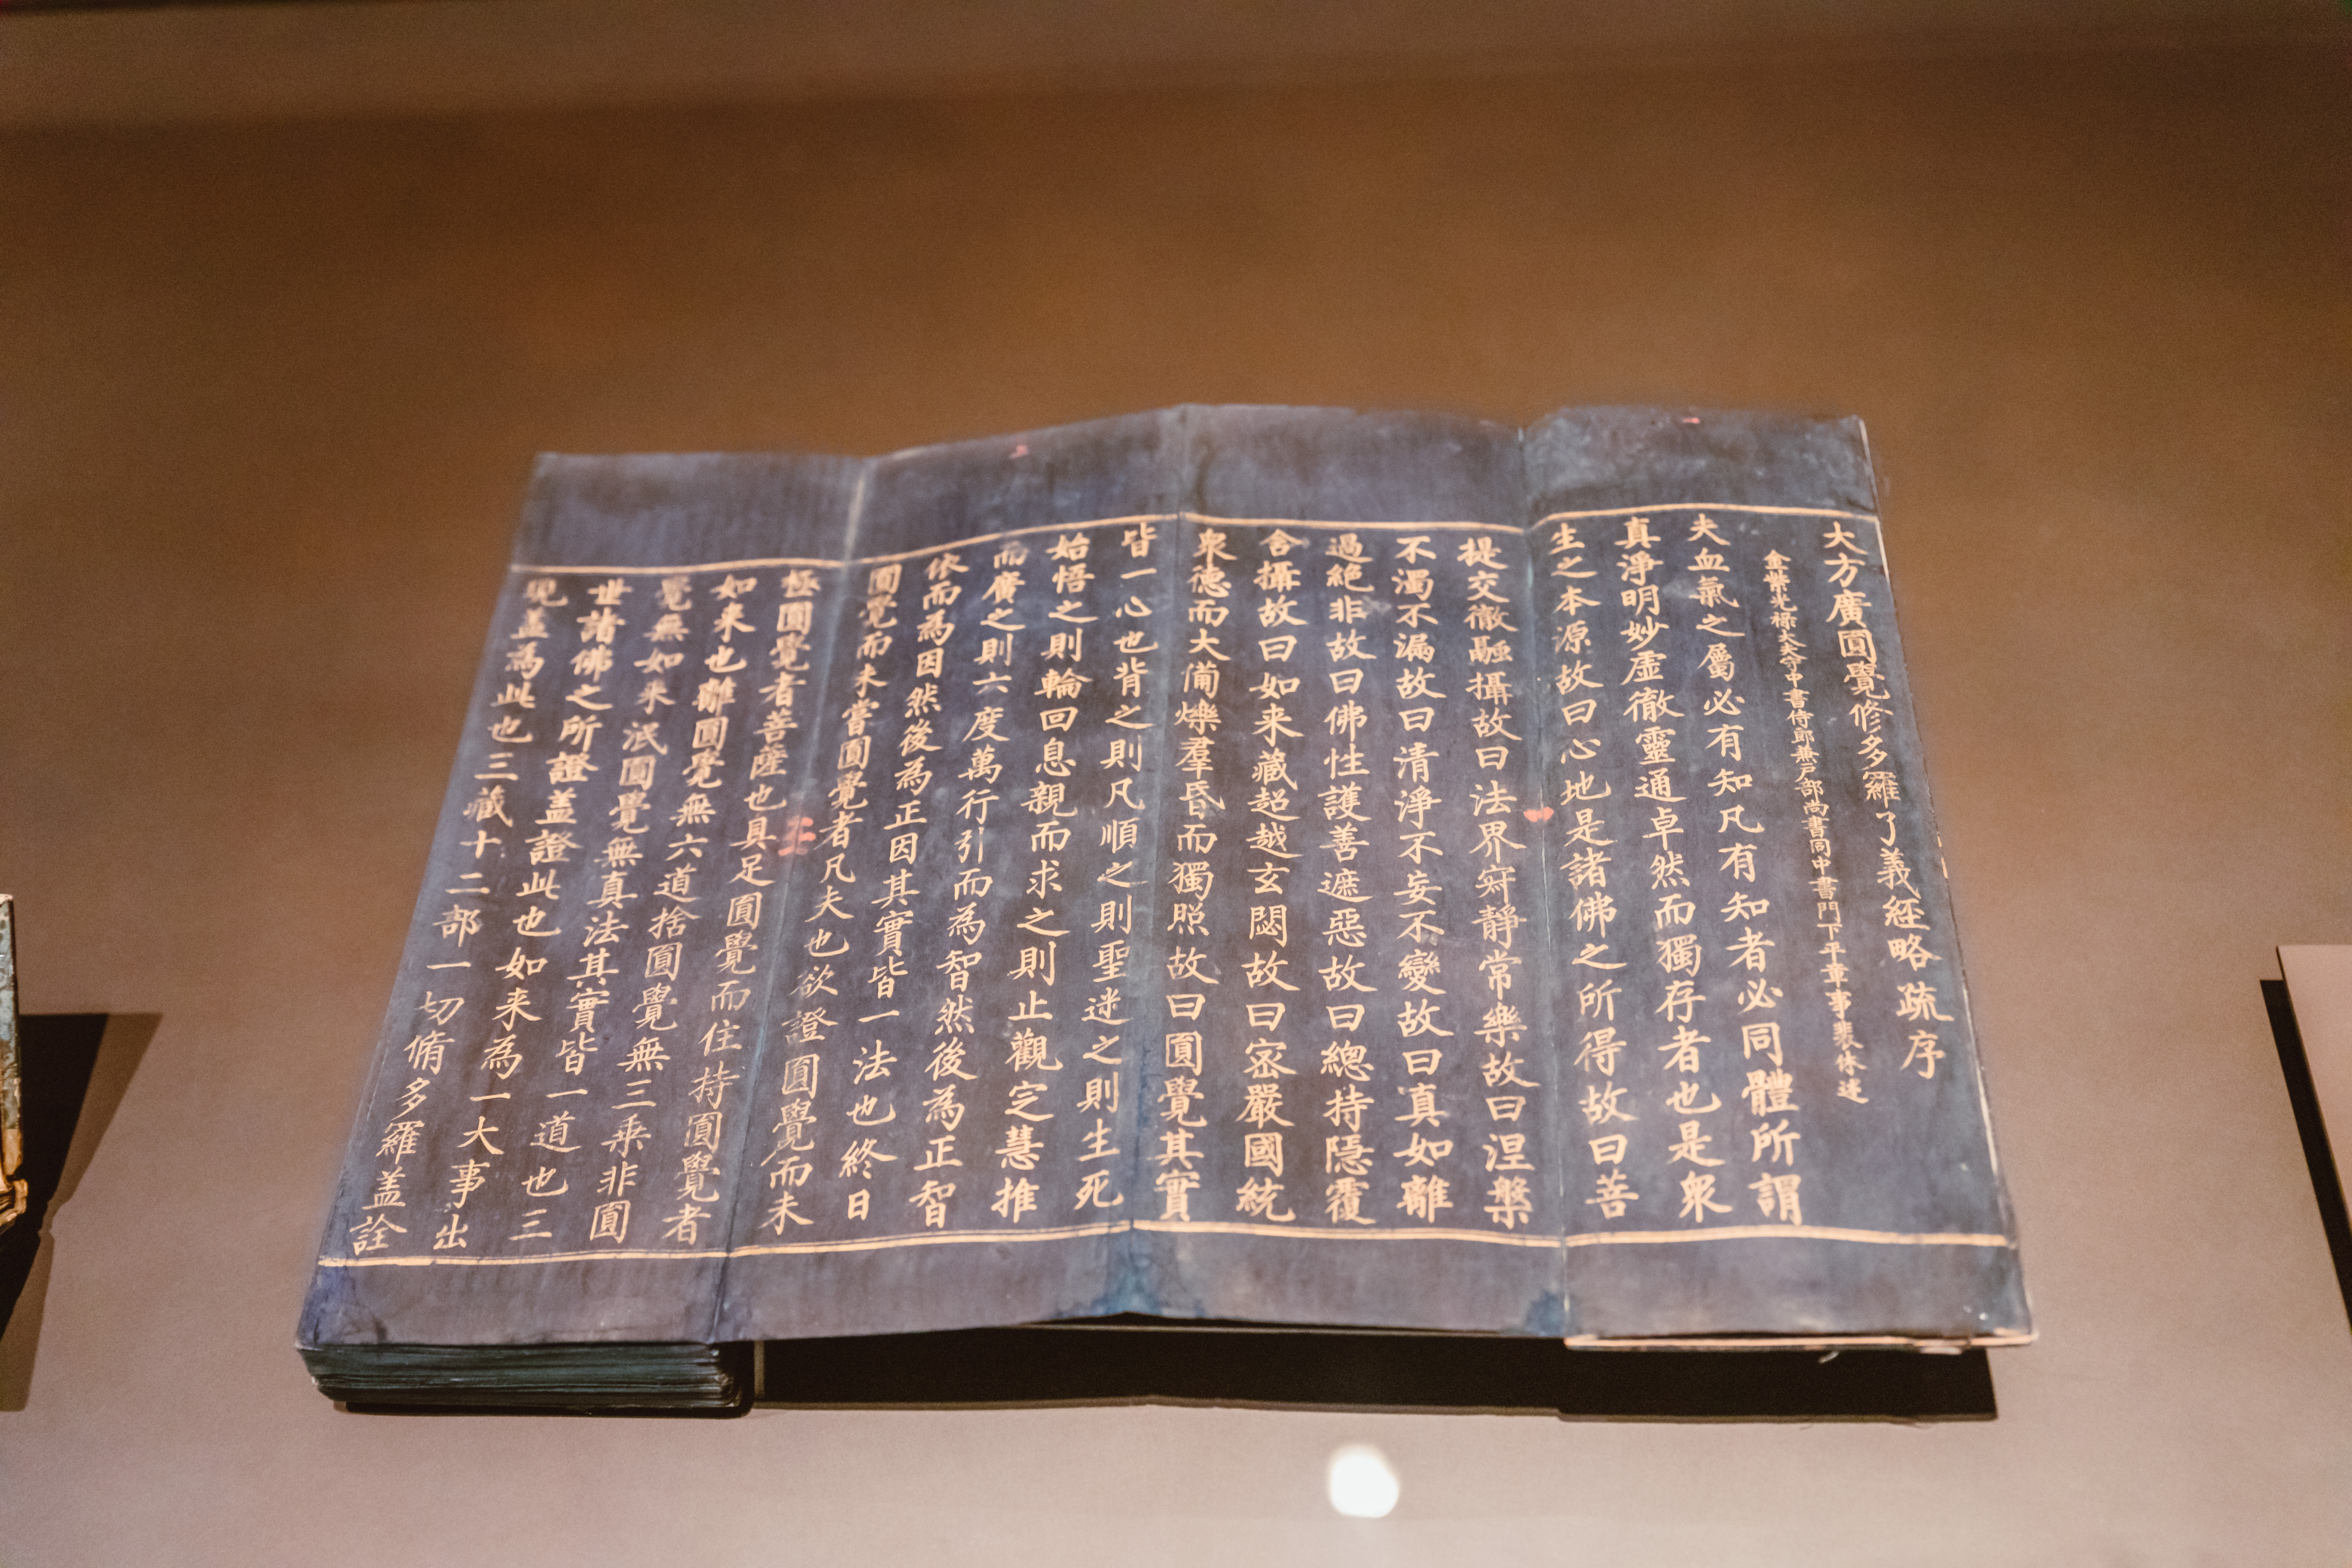 大方廣圓覺修多羅了義經略疏序
金紫光祿大夫守中書侍郎兼戶部尚書同中書門下平章事裴休述
夫血氣之屬必有知凡有知者必同體所謂
真淨明妙虛徹靈通卓然而獨存者也是衆
生之本源故曰心地是諸佛之所得故曰菩
提交徹融攝故曰法界寂靜常樂故曰涅槃
不濁不漏故曰清淨不妄不變故曰真如離
過絕非故曰佛性護善遮惡故曰總持隱覆
含攝故曰如来藏超越玄閟故曰密嚴國統
衆德而大備爍羣昏而獨照故曰圓覺其實
皆一心也背之則凡順之則聖迷之則生死
始悟之則輪回息親而求之則止觀定慧推
而廣之則六度萬行引而為智然後為正智
依而為因然後為正因其實皆一法也終日
圓覺而未嘗圓覺者凡夫也欲證圓覺而未
極圓覺者菩薩也具足圓覺而住持圓覺者
如来也離圓覺無六道捨圓覺無三乘非圓
覺無如来泯圓覺無真法其實皆一道也三
世諸佛之所證盖證此也如来為一大事出
現盖為此也三藏十二部一切脩多羅盖詮